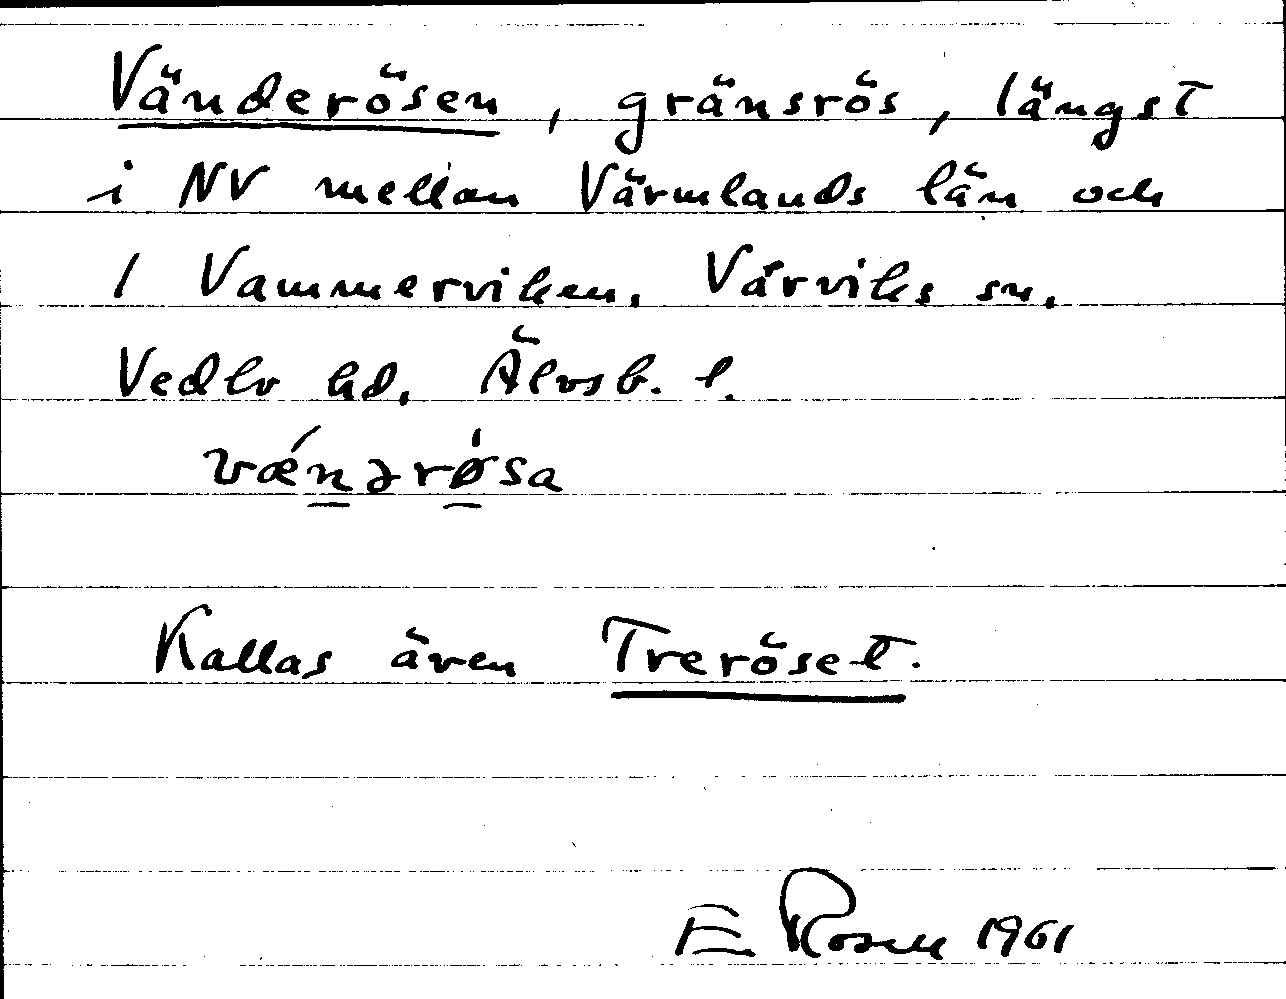 Vänderösen, gränsrös, längst
i NV mellan Värmlands län och
/ Vammerviken. Vårviks sn.
Vedbo hd. Älvsb. l.
væ´nərø´sa
Kallas även Treröset.
E Rosell 1961